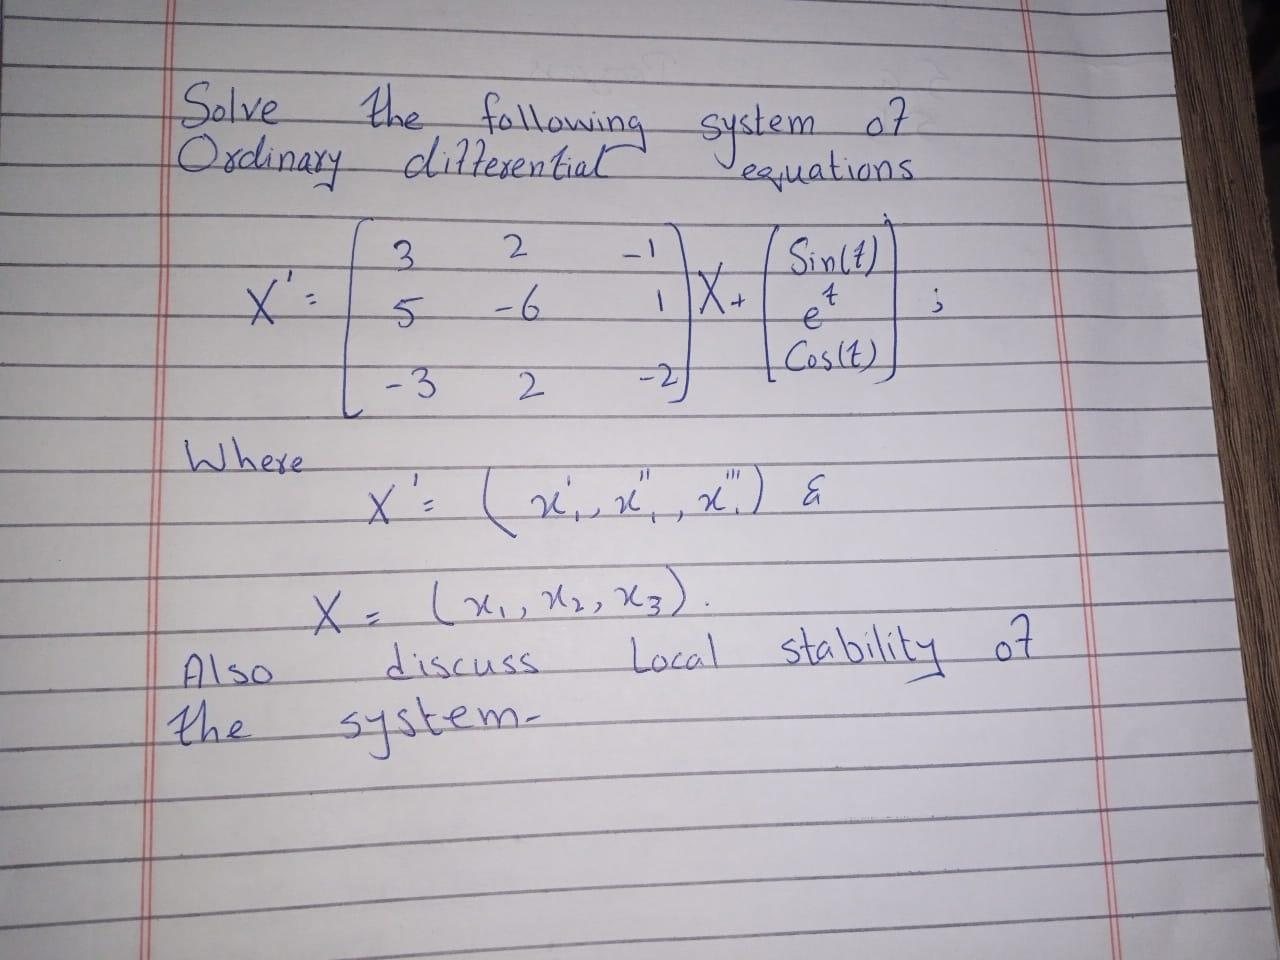 Solve the following system of
Ordinary differential equations
X' = [ 3 2 -1 ; 5 -6 1 ; -3 2 -2 ] X + [ Sin(t) ; e^t ; Cos(t) ] ;
Where
X' = ( x'₁, x''₁, x'''₁ ) &
X = (x₁, x₂, x₃).
Also discuss Local stability of
the system-